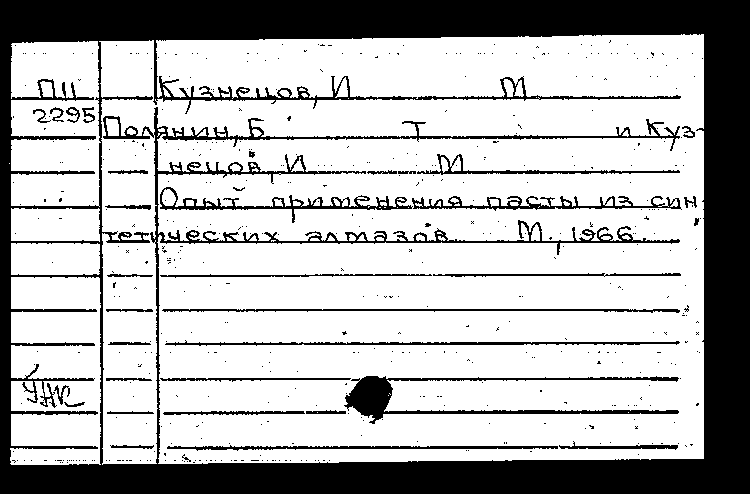 ПІІ Кузнецов, И М
2295
Полянин, Б Т и Куз-
нецов, И М
Опыт применения пасты из син-
тетических алмазов М., 1966.